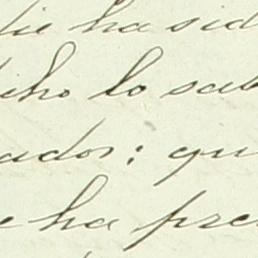 ha sid
iho lo sab
ados: qu
e ha pre